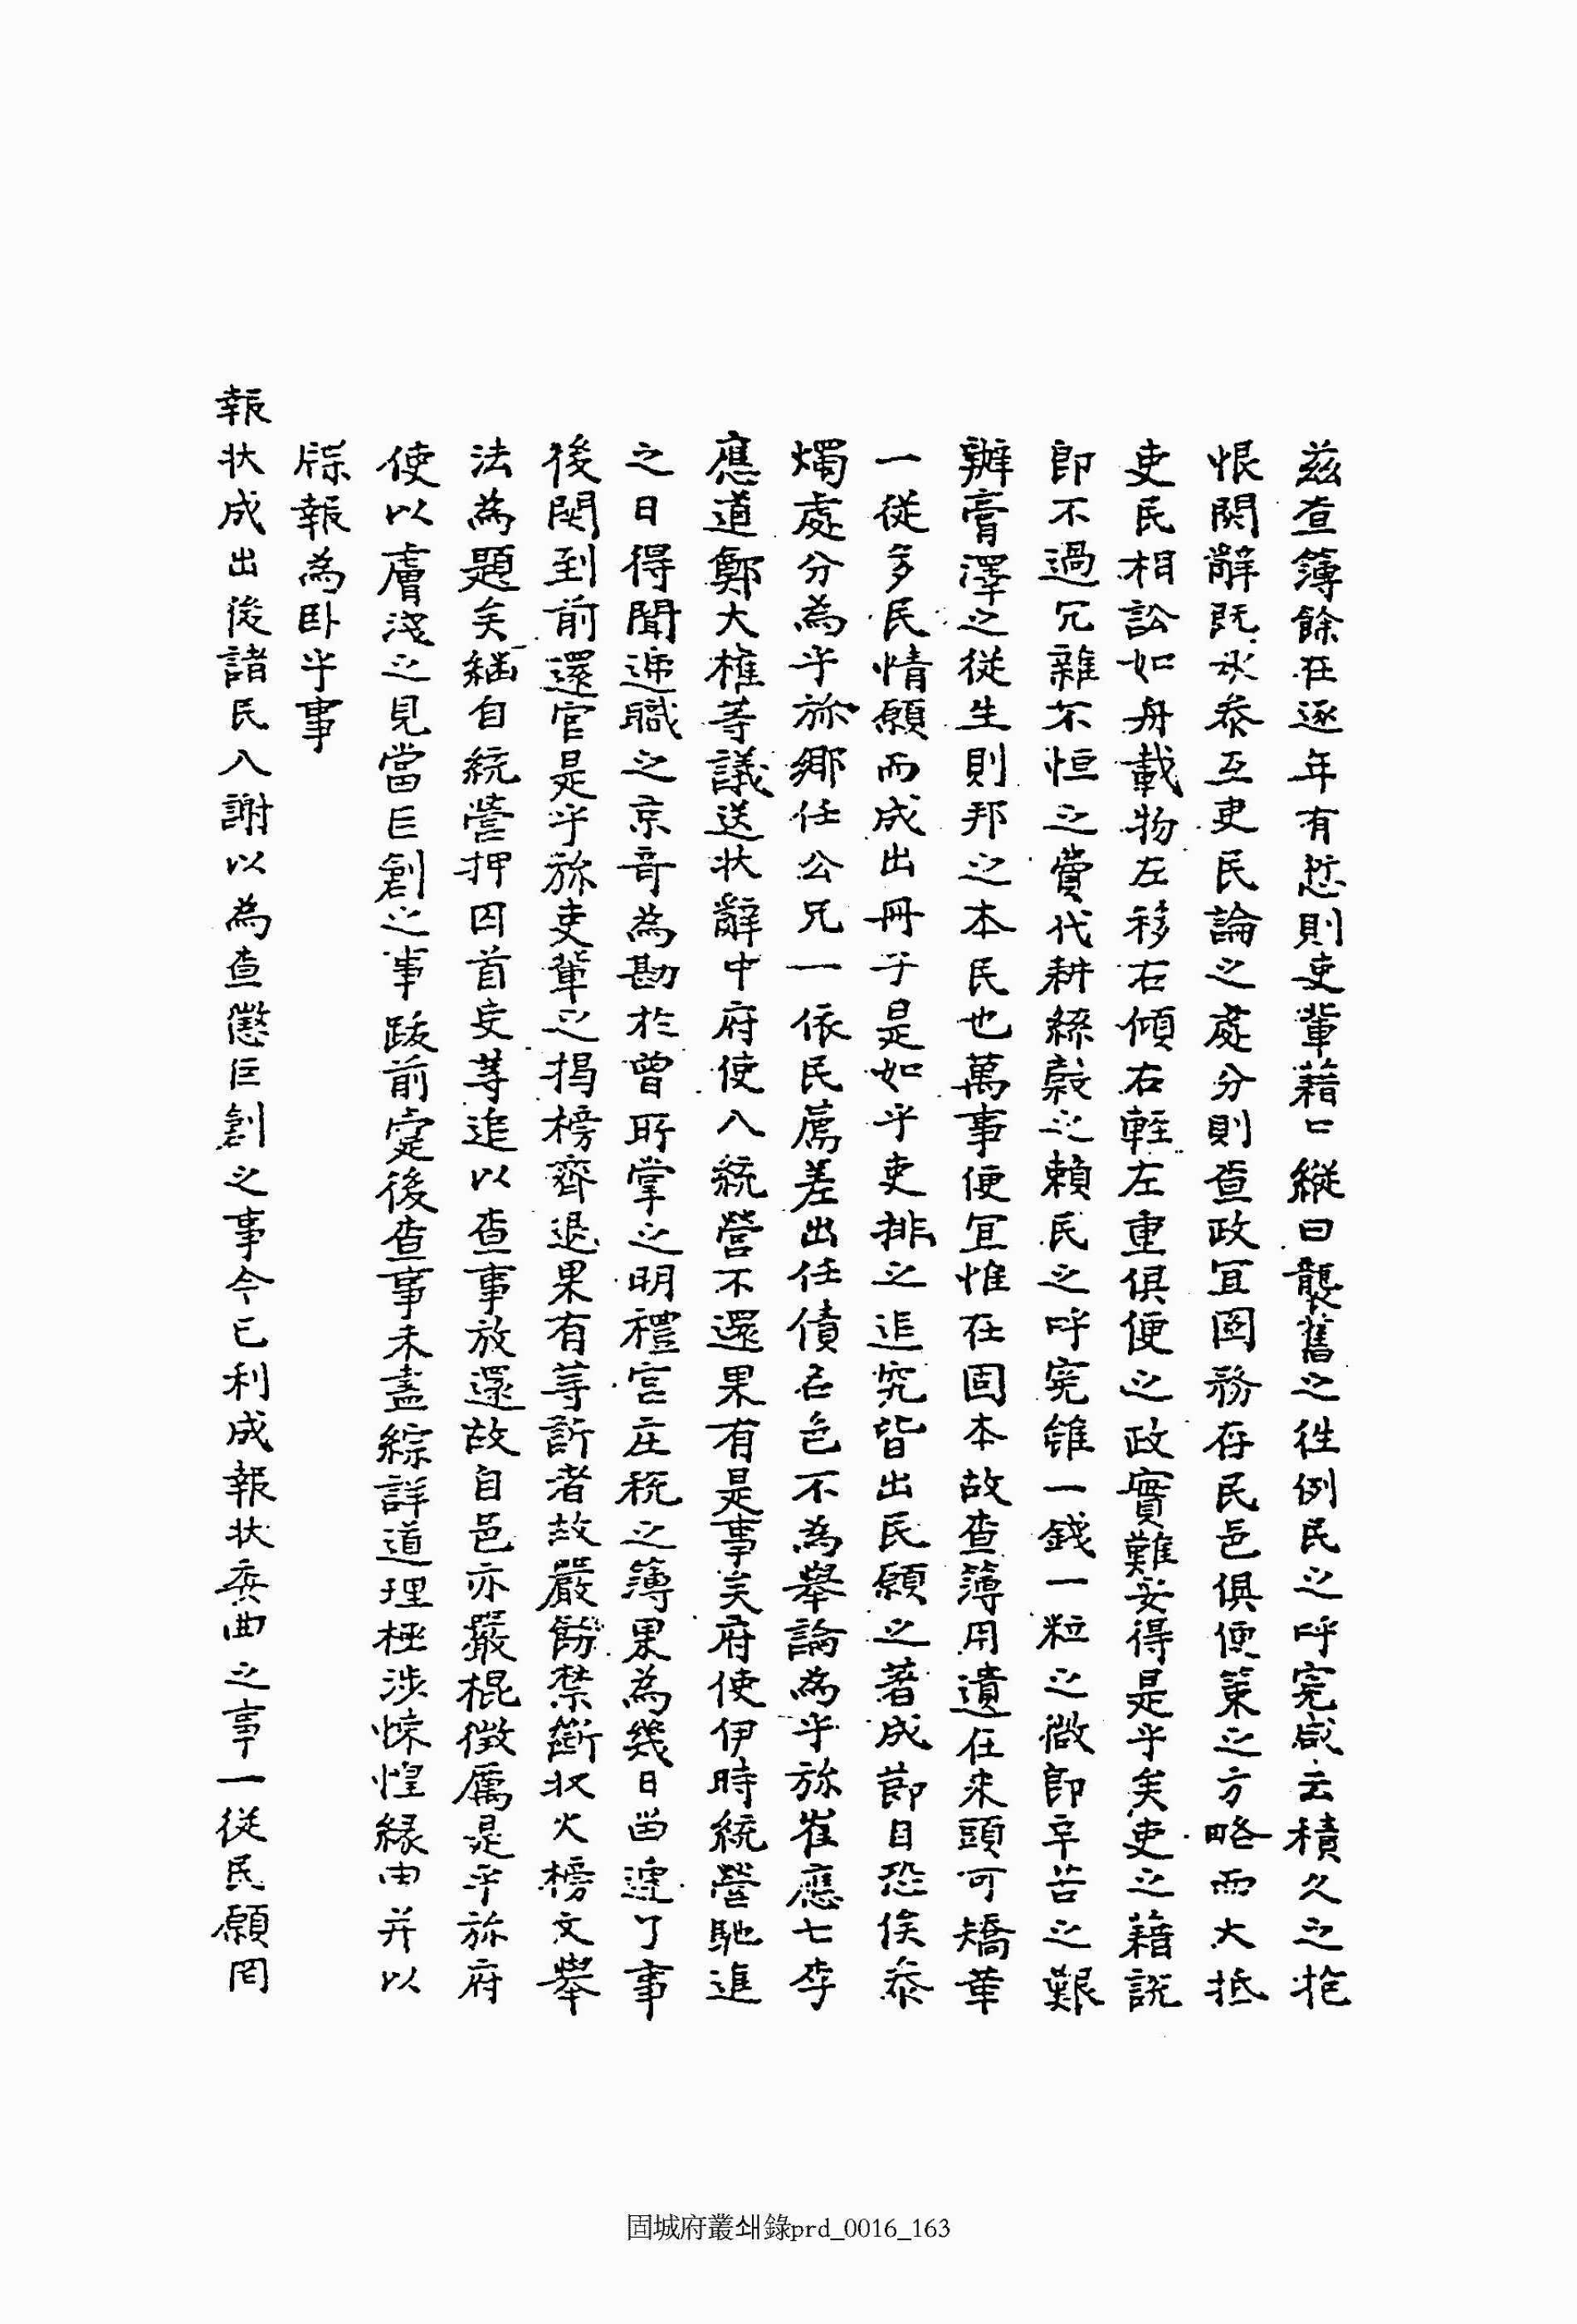 茲查簿餘在逐年有愆則吏輩藉口縱曰襲舊之徃例民之呼寃咸云積久之抱
恨關辭旣承叅互吏民論之處分則查政宜固務存民邑俱便策之方略而大抵
吏民相訟如舟載物左移右傾右輊左重俱便之政實難妥得是乎矣吏之藉說
卽不過冗雜不恒之費代耕絲穀之賴民之呼寃雖一錢一粒之微卽辛苦之艱
辦膏澤之從生則邦之本民也萬事便宜惟在固本故查簿用遺在來頭可矯革
一從多民情願而成出冊子是如乎吏排之追究皆出民願之著成節目恐俟叅
燭處分爲乎旀鄕任公兄一依民薦差出任債名色不爲擧論爲乎旀崔應七李
應道鄭大權等議送狀辭中府使入統營不還果有是事矣府使伊時統營馳進
之日得聞遞職之京奇爲勘於曾所掌之明禮宮庄稅之簿果爲幾日留遲了事
後關到前還官是乎旀吏輩之揭榜齊退果有等訴者故嚴飭禁斷收火榜文擧
法爲題矣緇自統營押囚首吏等追以查事放還故自邑亦嚴棍徵厲是乎旀府
使以膚淺之見當巨創之事跋前疐後查事未盡綜詳道理極涉悚惶緣由幷以
牒報爲卧乎事
報狀成出後諸民入謝以爲查懲巨創之事今已利成報狀委曲之事一從民願罔
固城府叢쇄錄prd_0016_163